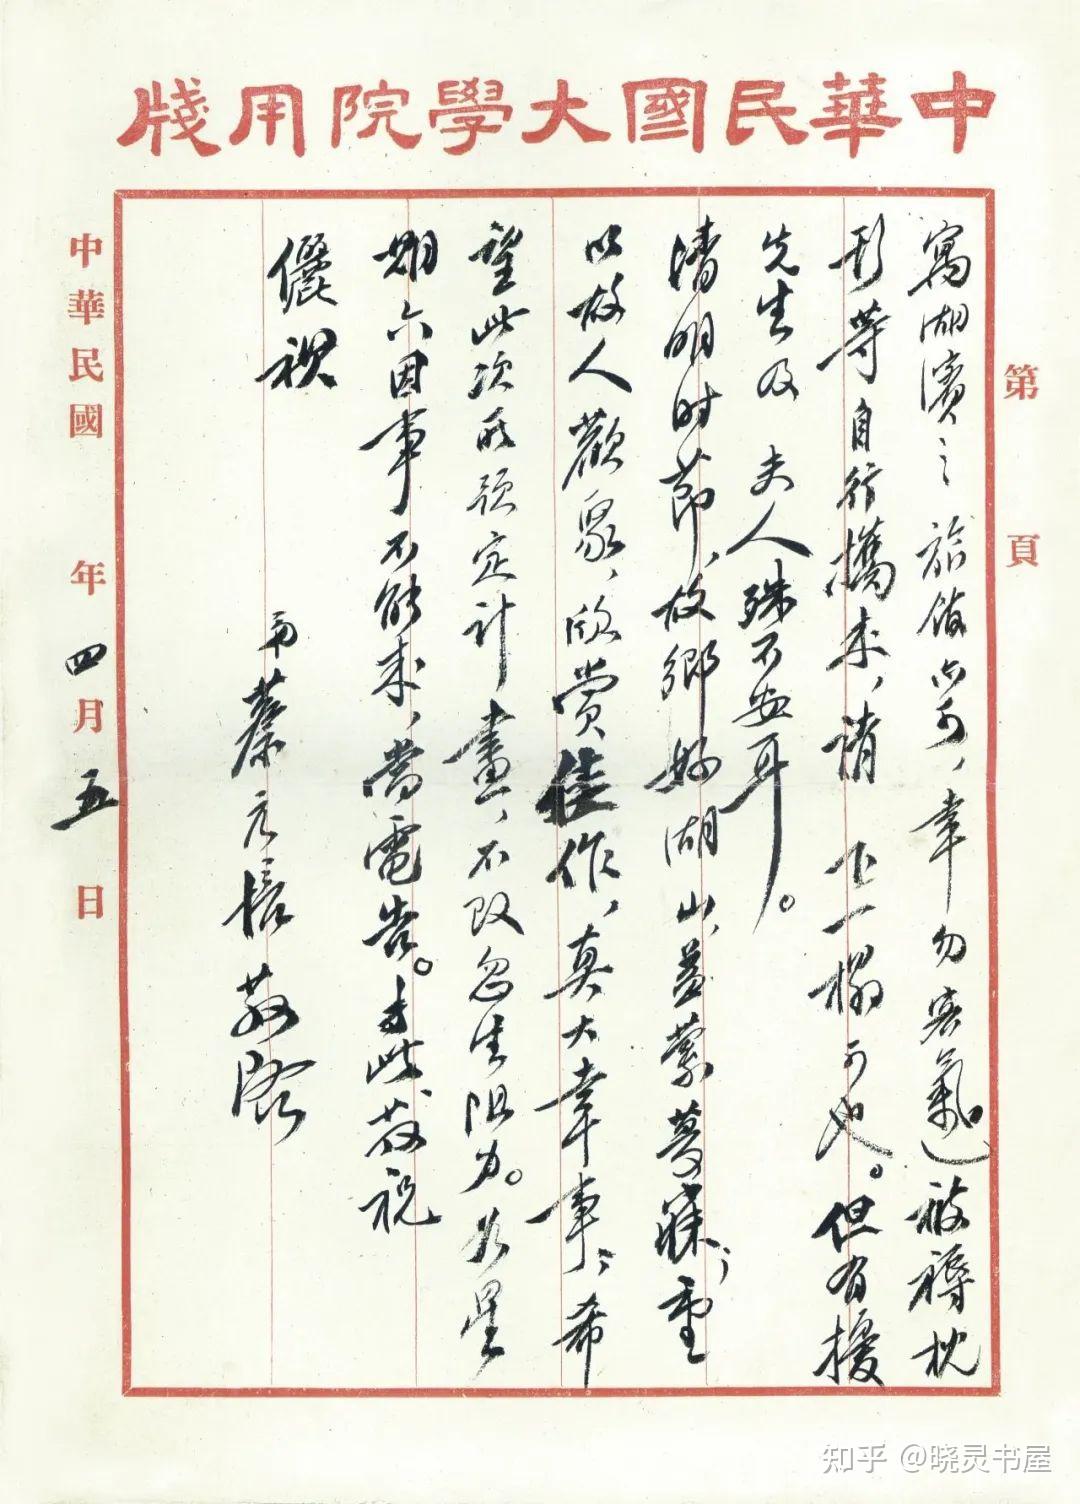 中華民國大學院用牋
第 頁
寓湖濱之旅館亦可，幸勿客氣）被褥枕
等自行攜來，請 下一榻可也。但有擾
先生及 夫人殊不安耳。
清明時節，故鄉好湖山，益縈夢寐；重
以故人歡聚，欣賞佳作，真大幸事；希
望此次所預定計畫，不致忽生阻力。如星
期六因事不能來，當電告。專此，敬祝
儷祉
弟蔡元培敬啓
中華民國 年四月五日
知乎 @晓灵书屋